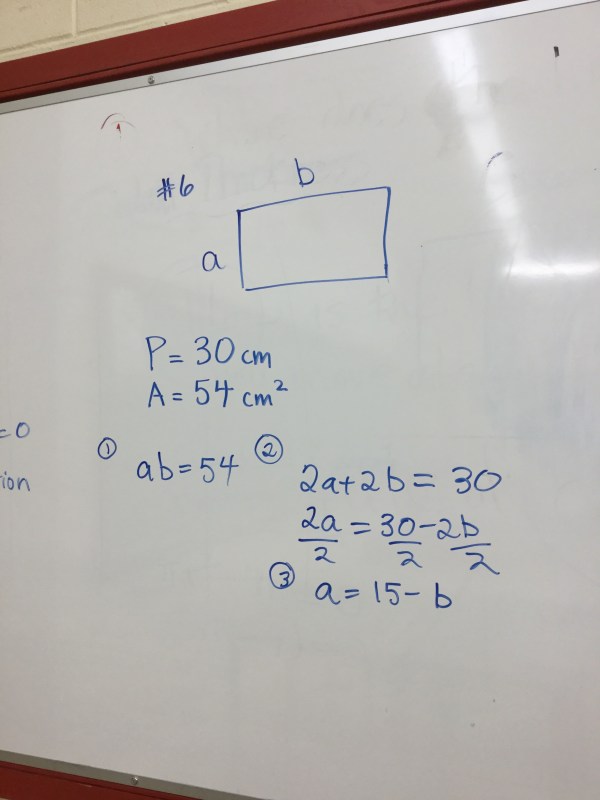 #6
b
a
P = 30 cm
A = 54 cm²
= 0
ion
① ab = 54
② 2a + 2b = 30
2a/2 = 30/2 - 2b/2
③ a = 15 - b